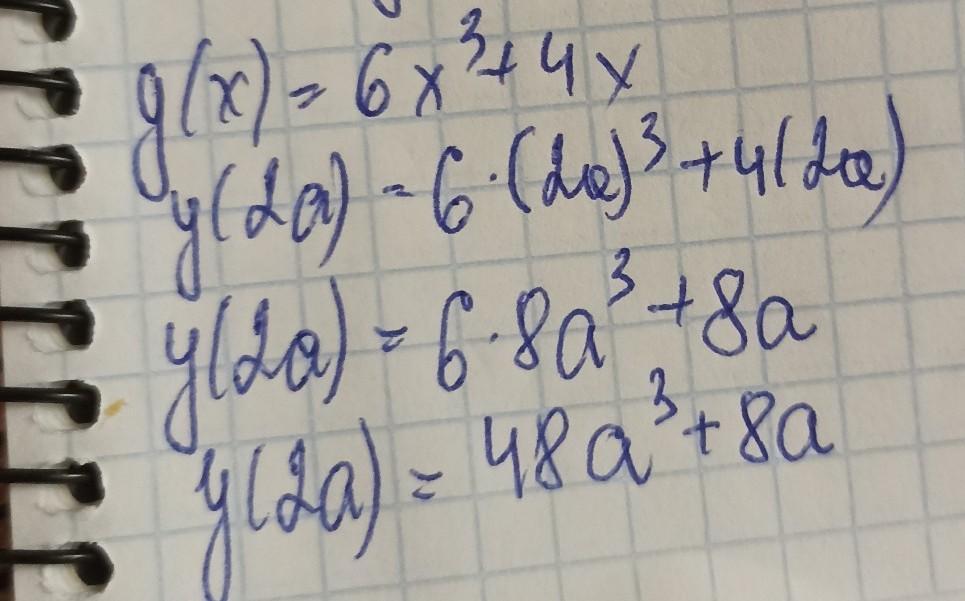 g(x) = 6x³ + 4x
y(2a) = 6·(2a)³ + 4(2a)
y(2a) = 6·8a³ + 8a
y(2a) = 48a³ + 8a